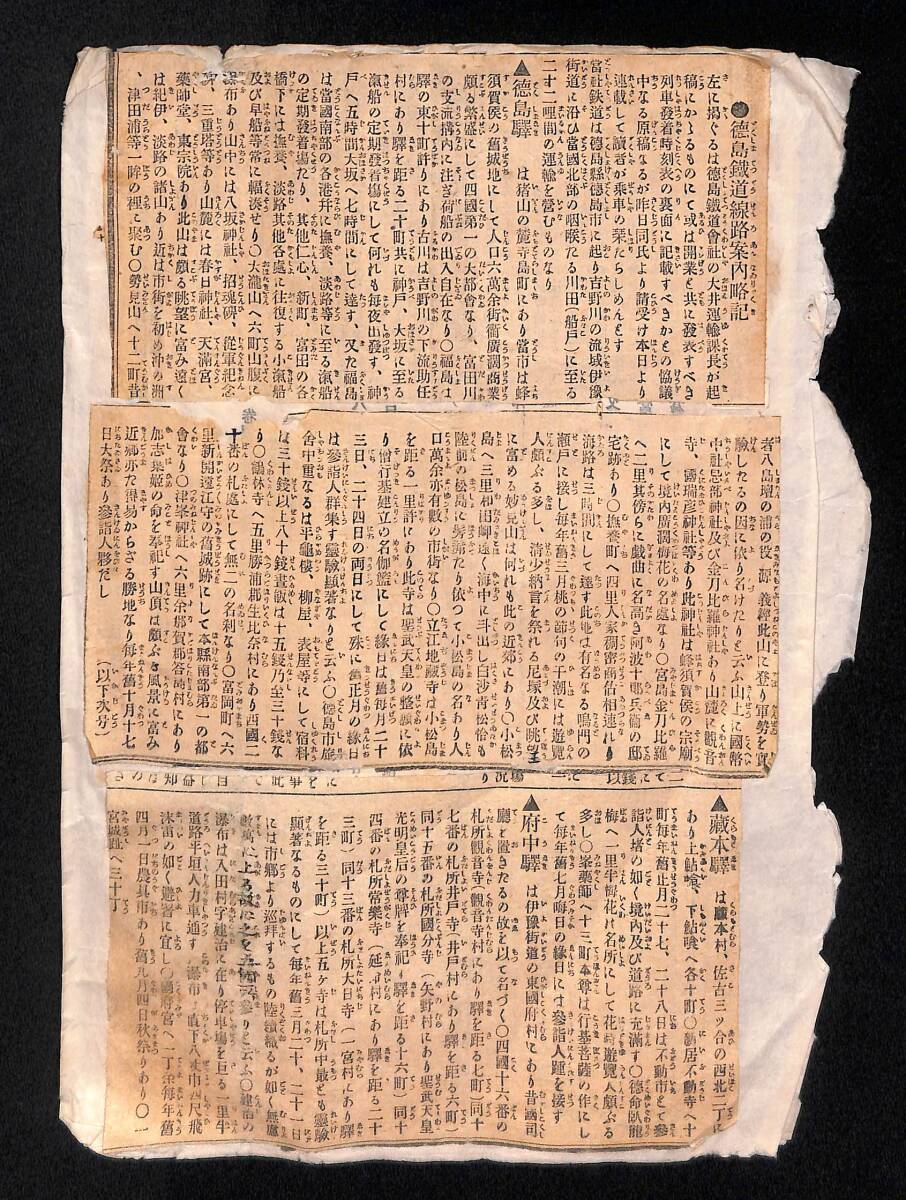 ●德島鐵道線路案內略記
左に揭ぐるは德島鐵道會社の大井運輸課長が起
稿にかゝるものにて或は開業と共に發表すべき
列車發着時刻表の裏面に記載すべきかとの協議
中なる原稿なるが昨日同氏より請受け本日より
連載して讀者が乘車の栞たらしめんとす
當社鐵道は德島縣德島市に起り吉野川の流域伊豫
街道に沿ひ當國北部の咽喉たる川田(船戶)に至る
二十二哩間の運輸を營むものなり
▲德島驛 は猪山の麓寺島町にあり當市は蜂
須賀侯の舊城地にして人口六萬余街衢廣濶商業
頗る繁盛にして四國第一の大都會なり、富田川
の支流搆內に注ぎ荷船の出入自在なり〇福島は
驛の東十町許りにあり古川は吉野川の下流助任
村にあり驛を距る二十町共に神戶、大坂に至る
滊船の定期發着塲にして何れも每夜出發す、神
戶へ五時間大坂へ七時間にして達す、又た福島
は當國南部の各港幷に撫養、淡路等に至る滊船
の定期發着塲たり、其他仁心、新町、富田の各
橋下には撫養、淡路其他各處に往復する小滊船
及び早船等常に輻湊せり〇大瀧山へ六町山腹に
瀑布あり山中には八坂神社、招魂碑、從軍紀念
碑、三重塔等あり山麓には春日神社、天滿宮、
藥師堂、東宗院あり此山は頗る眺望に富み遠く
は紀伊、淡路の諸山あり近は市街を初め沖の洲
、津田浦等一眸の裡に聚む〇勢見山へ十二町昔
者八島壇の浦の役源義經此山に登り軍勢を實
驗したるの因に依り名けたりと云ふ山上に國幣
中社忌部神社及び金刀比羅神社あり山麓に觀音
寺、國瑞彥神社等あり此神社は蜂須賀侯の宗廟
にして境內廣濶梅花の名處なり〇宮島金刀比羅
へ二里其傍らに戯曲に名高き阿波十郞兵衞の邸
宅跡あり〇撫養町へ四里人家稠密商估相連れり
海路は三時間にして達す此地は有名なる鳴門の
瀨戶に接し每年舊三月桃の節句の干潮には遊覽
人頗ぶる多し、淸少納言を祭れる尼塚及び眺望
に富める妙見山は何れも此の近郊にあり〇小松
島へ三里和田岬遠く海中に斗出し白沙靑松恰も
陸前の松島に髣髴たり依つて小松島の名あり人
口萬余亦有數の市街なり〇立江地藏寺は小松島
を距る一里許にあり此寺は聖武天皇の整願に依
り僧行基建立の名伽籃にして緣日は舊每月二十
三日、二十四日の兩日にして殊に舊正月の緣日
は參詣人群集す靈驗顯著なりと云ふ〇德島市旅
舍中重なるは平龜樓、柳屋、表屋等にして宿料
は三十錢以上八十錢晝飯は十五錢乃至三十錢な
り〇鶴林寺へ五里勝浦郡生比奈村にあり四國二
十番の札處にして無二の名刹なり〇富岡町へ六
里新開遠江守の舊城跡にして本縣南部第一の都
會なり〇津峯神社へ六里余那賀郡答島村にあり
加志葉姬の命を奉祀す山頂は頗ぶる風景に富み
近鄕亦た得易からざる勝地なり每年舊十月十七
日大祭あり參詣人夥だし (以下次号)
▲藏本驛 は藏本村、佐古三ッ合の西北二丁に
あり上鮎喰、下鮎喰へ各十町〇鶴居不動寺へ十
町每年舊正月二十七、二十八日は不動市とて參
詣人堵の如く境內及び道路に充滿す〇德命臥龍
梅へ一里半梅花の名所にして花時遊覽人頗ぶる
多し〇峯藥師へ十三町本尊は行基菩薩の作にし
て每年舊七月晦日の緣日には參詣人踵を接す
▲府中驛 は伊豫街道の東國府村にあり昔國司
廳を置きたるの故を以て名づく〇四國十六番の
札所觀音寺(觀音寺村にあり驛を距る七町)同十
七番の札所井戶寺(井戶村にあり驛を距る六町)
同十五番の札所國分寺(矢野村にあり聖武天皇
光明皇后の尊牌を奉祀り驛を距る十六町)同十
四番の札所常樂寺(延命村にあり驛を距る二十
三町)同十三番の札所大日寺(一宮村にあり驛
を距る三十町)以上五ケ寺は札所中最とも靈驗
顯著なるものにして每年舊三月二十、二十一日
には市鄕より巡拜するもの陸續織るが如く無慮
數萬に上る故に之を五箇所參りと云ふ〇建治の
瀑布は入田村字建治に在り停車塲を亘る一里半
道路平坦人力車通す瀑布一直下八丈巾四尺飛
沫雷の如く避暑に宜し〇國府宮へ一丁余每年舊
四月一日農具市あり舊九月四日秋祭りあり〇一
宮城趾へ三十丁